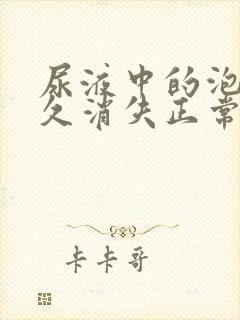 尿液中的泡
久消失正常
卡卡哥